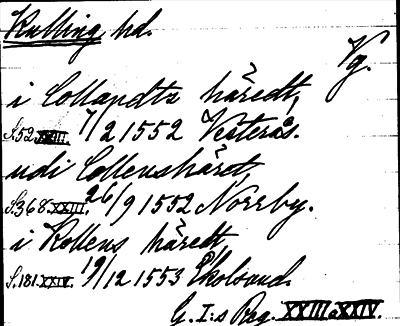 Kulling hd.
Vg.
i Collandtz häredt,
S.52.XXIII. 7/2 1552 Vesterås.
udi Collenshäret,
S.368.XXIII. 26/9 1552 Norrby.
i Kollens häredt,
S.181.XXIV. 19/12 1553 Ekolsund.
G. I:s Reg. XXIII o XXIV.